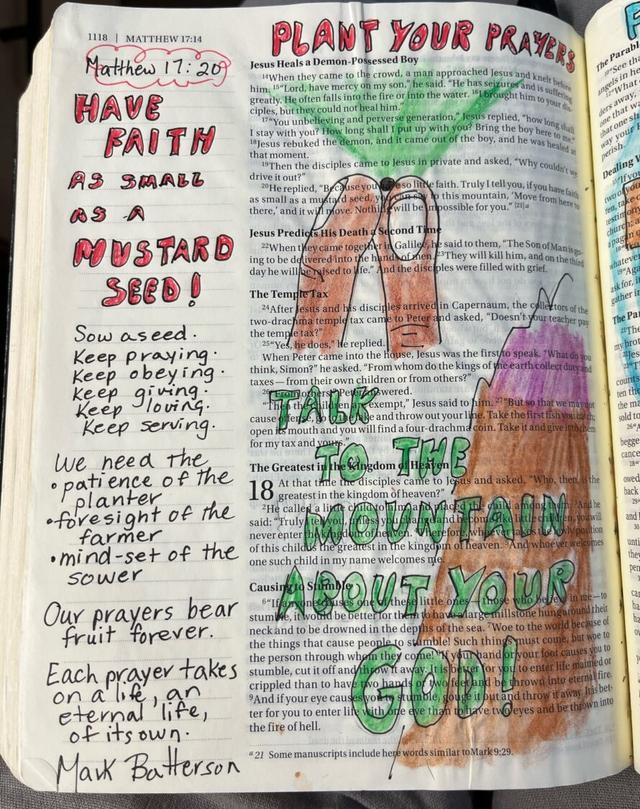 1118 | MATTHEW 17:14
PLANT YOUR PRAYERS
Matthew 17:20
HAVE
FAITH
AS SMALL
AS A
MUSTARD
SEED!
Sow a seed.
Keep praying.
Keep obeying.
Keep giving.
Keep loving.
Keep serving.
We need the
• patience of the
planter
• foresight of the
farmer
• mind-set of the
sower
Our prayers bear
fruit forever.
Each prayer takes
on a life, an
eternal life,
of its own.
Mark Batterson
Jesus Heals a Demon-Possessed Boy
14When they came to the crowd, a man approached Jesus and knelt before
him. 15"Lord, have mercy on my son," he said. "He has seizures and is suffering
greatly. He often falls into the fire or into the water. 16I brought him to your dis-
ciples, but they could not heal him."
17"You unbelieving and perverse generation," Jesus replied, "how long shall
I stay with you? How long shall I put up with you? Bring the boy here to me."
18Jesus rebuked the demon, and it came out of the boy, and he was healed at
that moment.
19Then the disciples came to Jesus in private and asked, "Why couldn't we
drive it out?"
20He replied, "Because you have so little faith. Truly I tell you, if you have faith
as small as a mustard seed, you can say to this mountain, 'Move from here to
there,' and it will move. Nothing will be impossible for you." [21]a
Jesus Predicts His Death a Second Time
22When they came together in Galilee, he said to them, "The Son of Man is go-
ing to be delivered into the hands of men. 23They will kill him, and on the third
day he will be raised to life." And the disciples were filled with grief.
The Temple Tax
24After Jesus and his disciples arrived in Capernaum, the collectors of the
two-drachma temple tax came to Peter and asked, "Doesn't your teacher pay
the temple tax?"
25"Yes, he does," he replied.
When Peter came into the house, Jesus was the first to speak. "What do you
think, Simon?" he asked. "From whom do the kings of the earth collect duty and
taxes—from their own children or from others?"
answered.
exempt," Jesus said to him. 27"But so that we may not
cause offense, go to the lake and throw out your line. Take the first fish you catch;
open its mouth and you will find a four-drachma coin. Take it and give it to them
for my tax and yours."
TALK
TO THE
MOUNTAIN
ABOUT YOUR
GOD!
The Greatest in the Kingdom of Heaven
18 At that time the disciples came to Jesus and asked, "Who, then, is the
greatest in the kingdom of heaven?"
2He called a little child among them. 3And he
said: "Truly I tell you, unless you change and become like little children, you will
never enter the kingdom of heaven. position
of this child is the greatest in the kingdom of heaven. 5And whoever welcomes
one such child in my name welcomes me.
Causing to Stumble
6"If anyone causes one of these little ones—those who believe in me—to
stumble, it would be better for them to have a large millstone hung around their
neck and to be drowned in the depths of the sea. 7Woe to the world because of
the things that cause people to stumble! Such things must come, but woe to
the person through whom they come! 8If your hand or your foot causes you to
stumble, cut it off and throw it away. It is better for you to enter life maimed or
crippled than to have two hands or two feet and be thrown into eternal fire.
9And if your eye causes you to stumble, gouge it out and throw it away. It is bet-
ter for you to enter life with one eye than to have two eyes and be thrown into
the fire of hell.
a 21 Some manuscripts include here words similar to Mark 9:29.